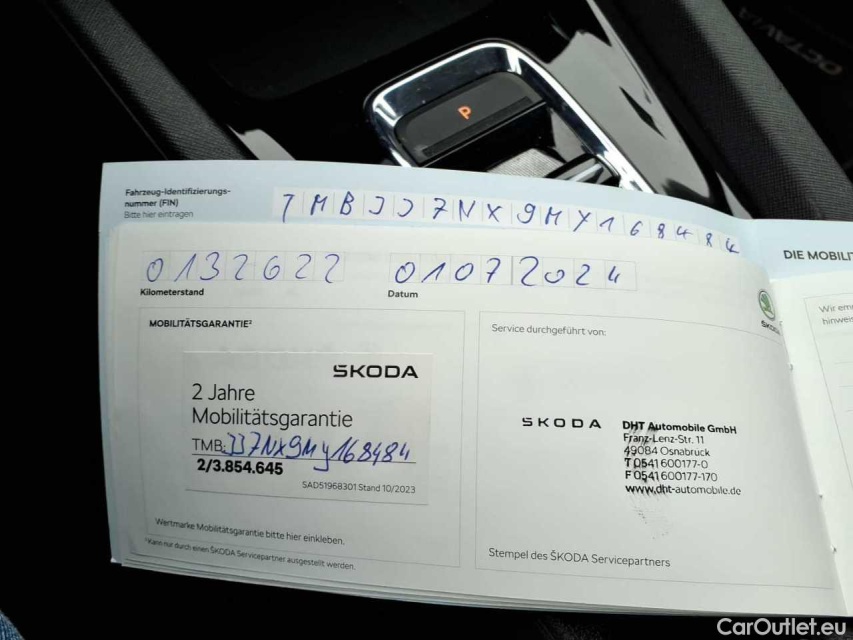 OCTAVIA
P
Fahrzeug-Identifizierungs-
nummer (FIN)
Bitte hier eintragen
TMBJJ7NX9MY168484
0132622
01072024
Kilometerstand
Datum
DIE MOBILI
MOBILITÄTSGARANTIE²
ŠKODA
2 Jahre
Mobilitätsgarantie
TMB: JJ7NX9MY168484
2/3.854.645
SAD51968301 Stand 10/2023
Wertmarke Mobilitätsgarantie bitte hier einkleben.
²Kann nur durch einen ŠKODA Servicepartner ausgestellt werden.
Service durchgeführt von:
SKODA
DHT Automobile GmbH
Franz-Lenz-Str. 11
49084 Osnabrück
T 0541 600177-0
F 0541 600177-170
www.dht-automobile.de
Stempel des ŠKODA Servicepartners
ŠKODA
Wir em
hinweis
CarOutlet.eu